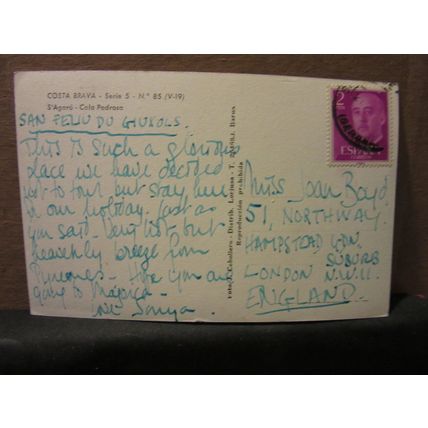 COSTA BRAVA - Serie 5 - N.° 85 (V-19)
S'Agaró - Cala Pedrosa
SAN FELIU DU GIUXOLS.
This is such a glorious
place we have decided
not to tour, but stay here
for our holiday. Just as
you said. Very hot but
heavenly breeze from
Pyrenees - Hope you are
going to Majorca -
love Sonya.
Reproducción prohibida
2
PTAS
ESPAÑA
Miss Joan Boyd
51, NORTHWAY,
HAMPSTEAD GDN.
SUBURB
LONDON N.W.11.
ENGLAND.